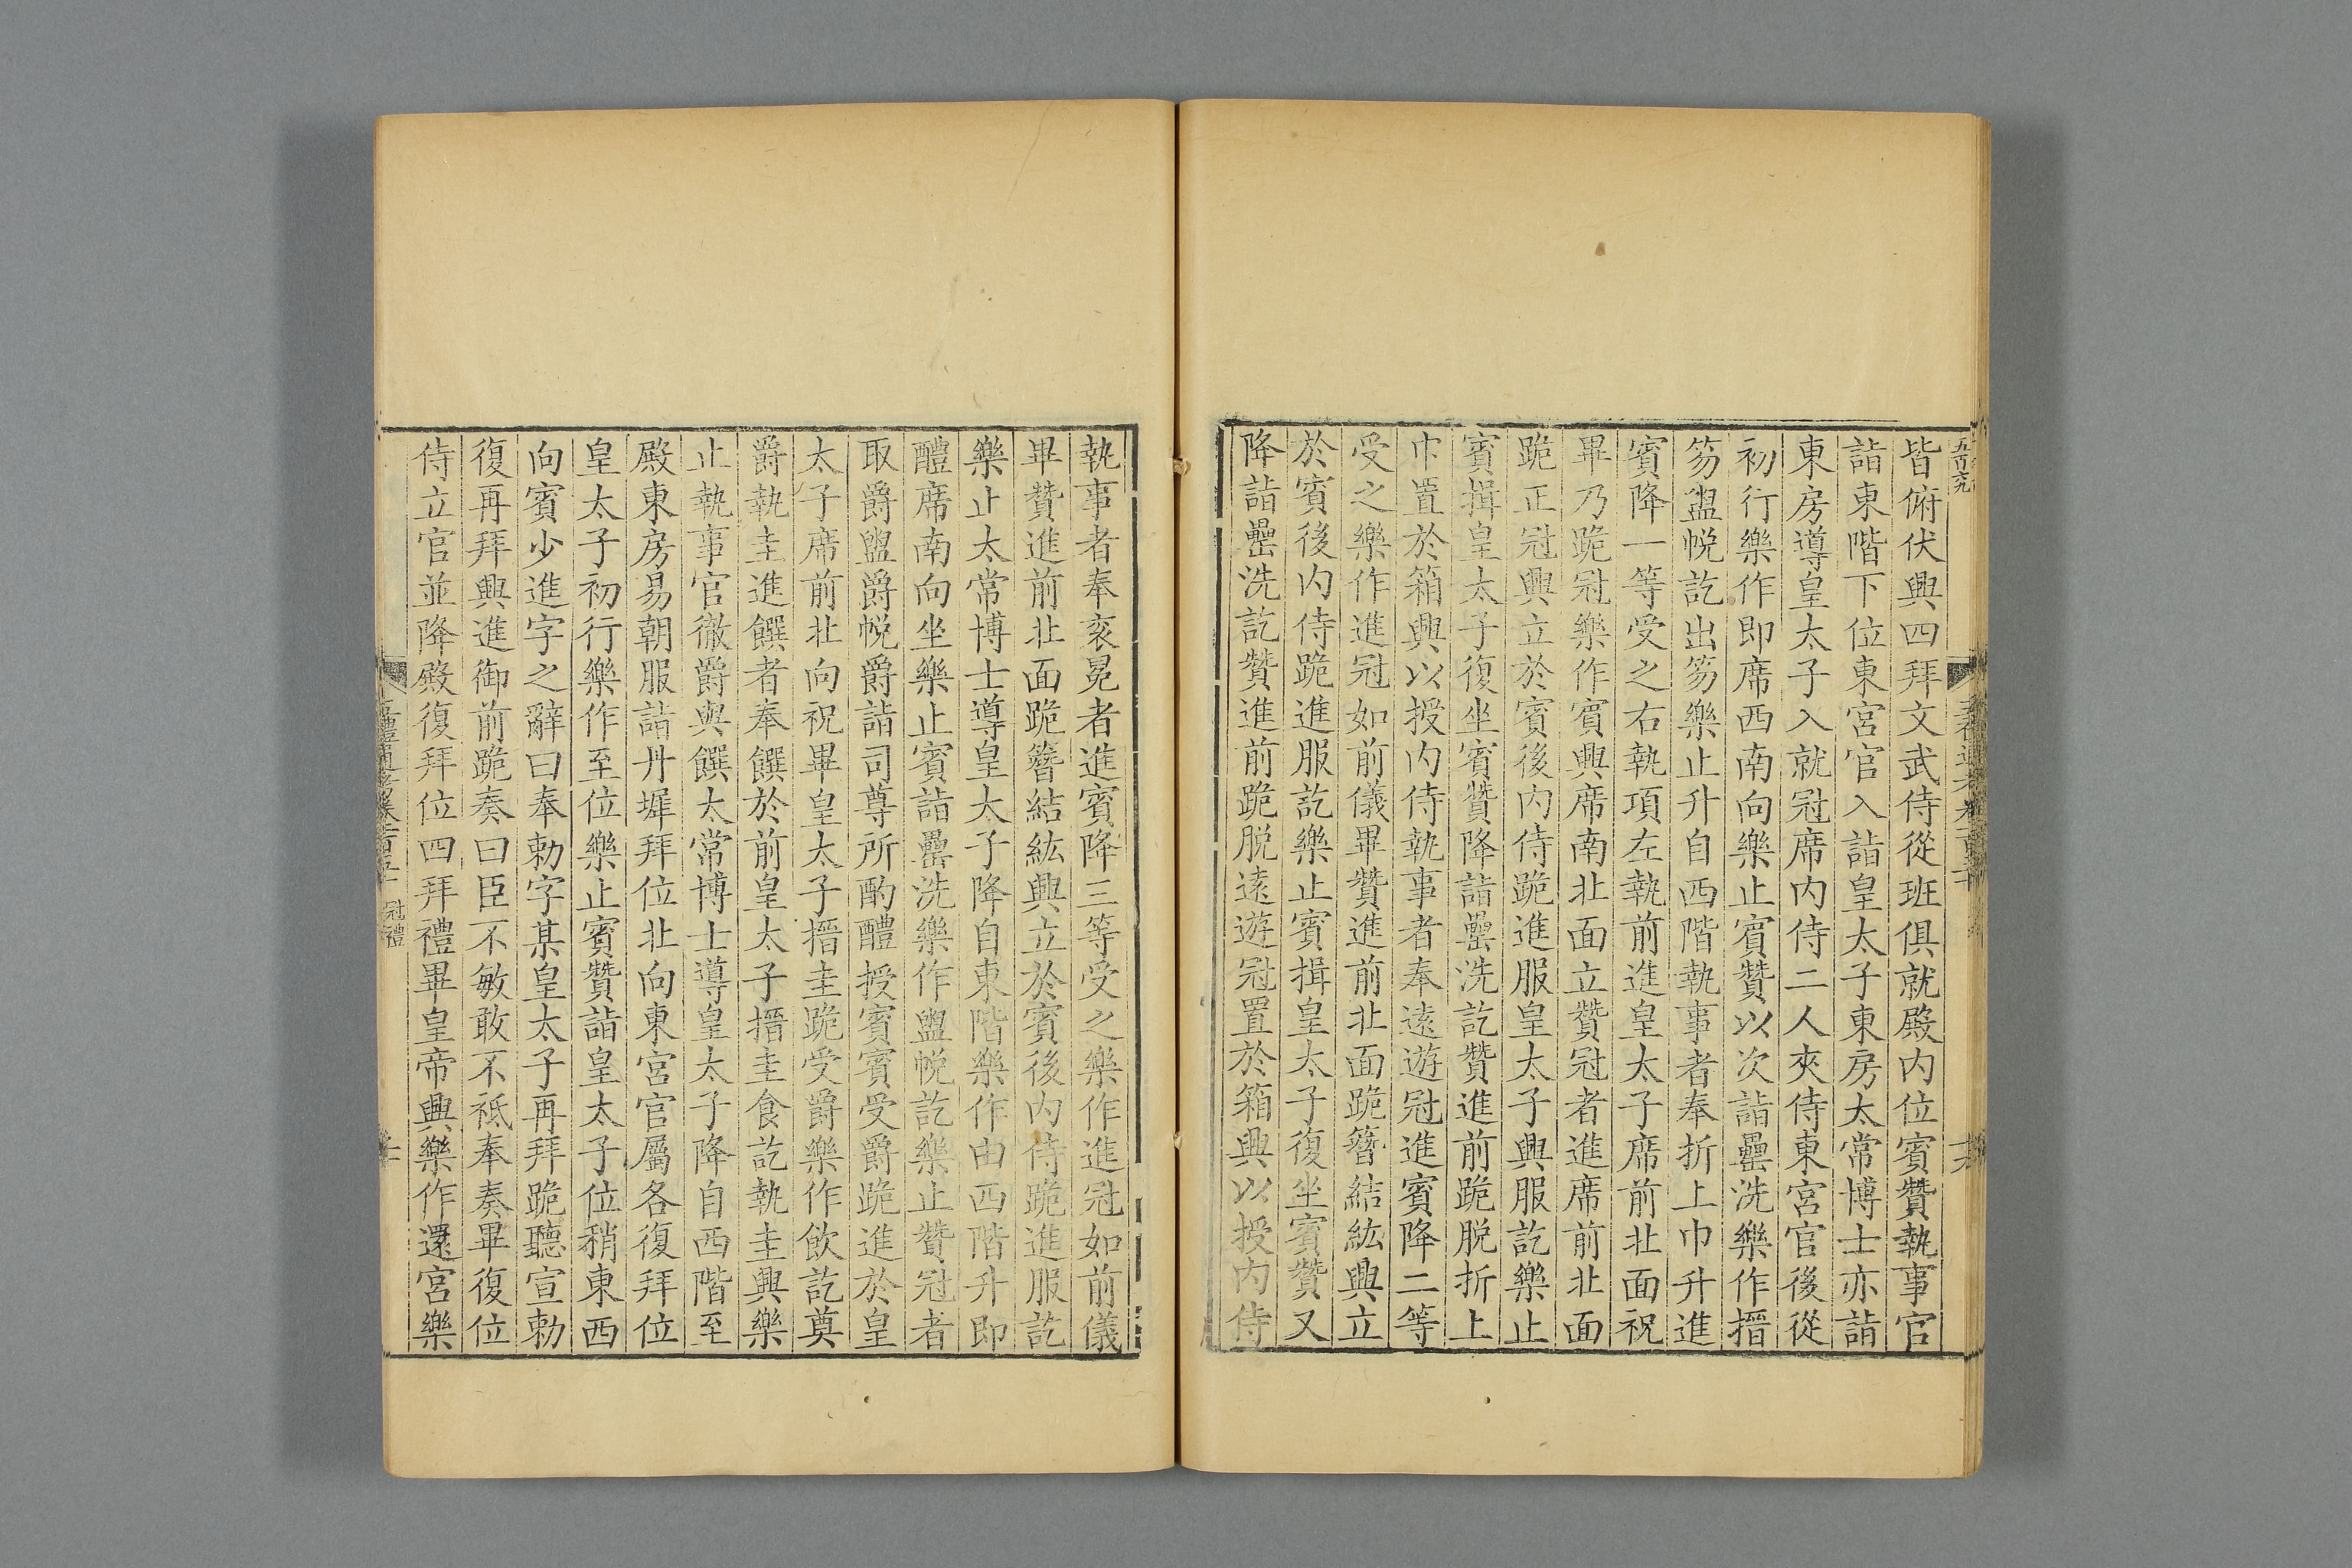 皆俯伏興四拜文武侍從班俱就殿内位賓贊執事官
詣東階下位東宮官入詣皇太子東房太常博士亦詣
東房導皇太子入就冠席内侍二人夾侍東宮官後從
初行樂作即席西南向樂止賓贊以次詣罍洗樂作搢
笏盥帨訖出笏樂止升自西階執事者奉折上巾升進
賓降一等受之右執項左執前進皇太子席前北面祝
畢乃跪冠樂作賓興席南北面立贊冠者進席前北面
跪正冠興立於賓後内侍跪進服皇太子興服訖樂止
賓揖皇太子復坐賓贊降詣罍洗訖贊進前跪脱折上
巾置於箱興以授内侍執事者奉遠遊冠進賓降二等
受之樂作進冠如前儀畢贊進前北面跪簪結紘興立
於賓後内侍跪進服訖樂止賓揖皇太子復坐賓贊又
降詣罍洗訖贊進前跪脱遠遊冠置於箱興以授内侍
執事者奉衮冕者進賓降三等受之樂作進冠如前儀
畢贊進前北面跪簪結紘興立於賓後内侍跪進服訖
樂止太常博士導皇太子降自東階樂作由西階升即
醴席南向坐樂止賓詣罍洗樂作盥帨訖樂止贊冠者
取爵盥爵帨爵詣司尊所酌醴授賓賓受爵跪進於皇
太子席前北向祝畢皇太子搢圭跪受爵樂作飲訖奠
爵執圭進饌者奉饌於前皇太子搢圭食訖執圭興樂
止執事官徹爵與饌太常博士導皇太子降自西階至
殿東房易朝服詣丹墀拜位北向東宮官屬各復拜位
皇太子初行樂作至位樂止賓贊詣皇太子位稍東西
向賓少進字之辭曰奉勅字某皇太子再拜跪聽宣勅
復再拜興進御前跪奏曰臣不敏敢不祗奉奏畢復位
侍立官並降殿復拜位四拜禮畢皇帝興樂作還宮樂
冠禮